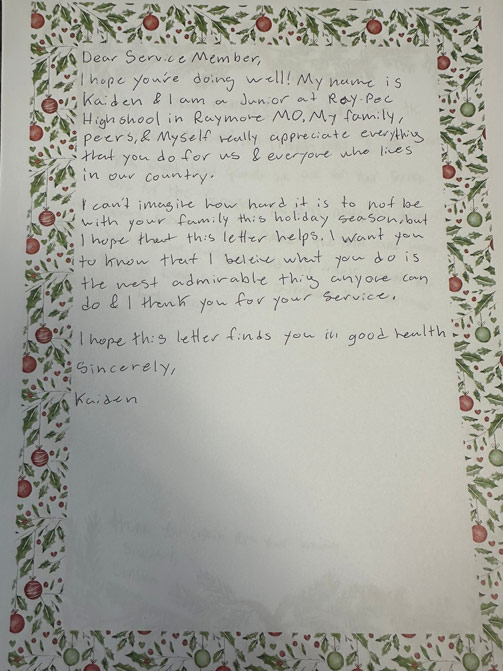 Dear Service Member,
I hope you're doing well! My name is
Kaiden & I am a Junior at Ray-Pec
Highshool in Raymore MO. My family,
peers, & Myself really appreciate everything
that you do for us & everyone who lives
in our country.
I can't imagine how hard it is to not be
with your family this holiday season, but
I hope that this letter helps. I want you
to know that I beleive what you do is
the most admirable thing anyone can
do & I thank you for your service.
I hope this letter finds you in good health
Sincerely,
Kaiden